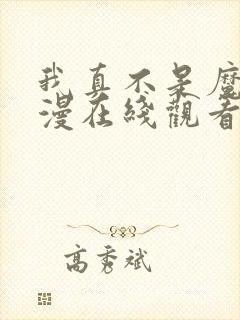 我真不是魔
漫在綫觀看
高秀斌